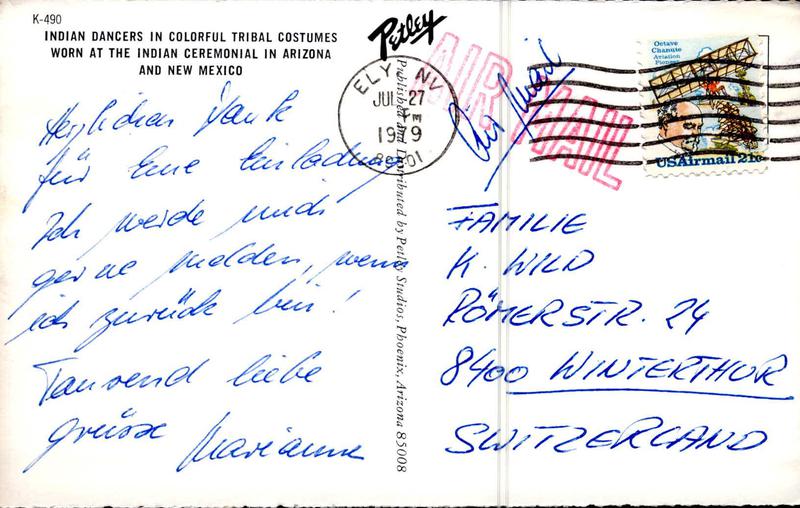 K-490
INDIAN DANCERS IN COLORFUL TRIBAL COSTUMES
WORN AT THE INDIAN CEREMONIAL IN ARIZONA
AND NEW MEXICO
Herzlichen Dank
für Eure Einladung
Ich werde mich
gerne melden, wenn
ich zurück bin!
Tausend liebe
grüsse Marianne
Petley
Published and Distributed by Petley Studios, Phoenix, Arizona 85008
ELY, NV
JUL 27
1979
AIR MAIL
Air Mail
Octave
Chanute
Aviation
Pioneer
USAirmail 21c
FAMILIE
K. WILD
RÖMERSTR. 24
8400 WINTERTHUR
SWITZERLAND